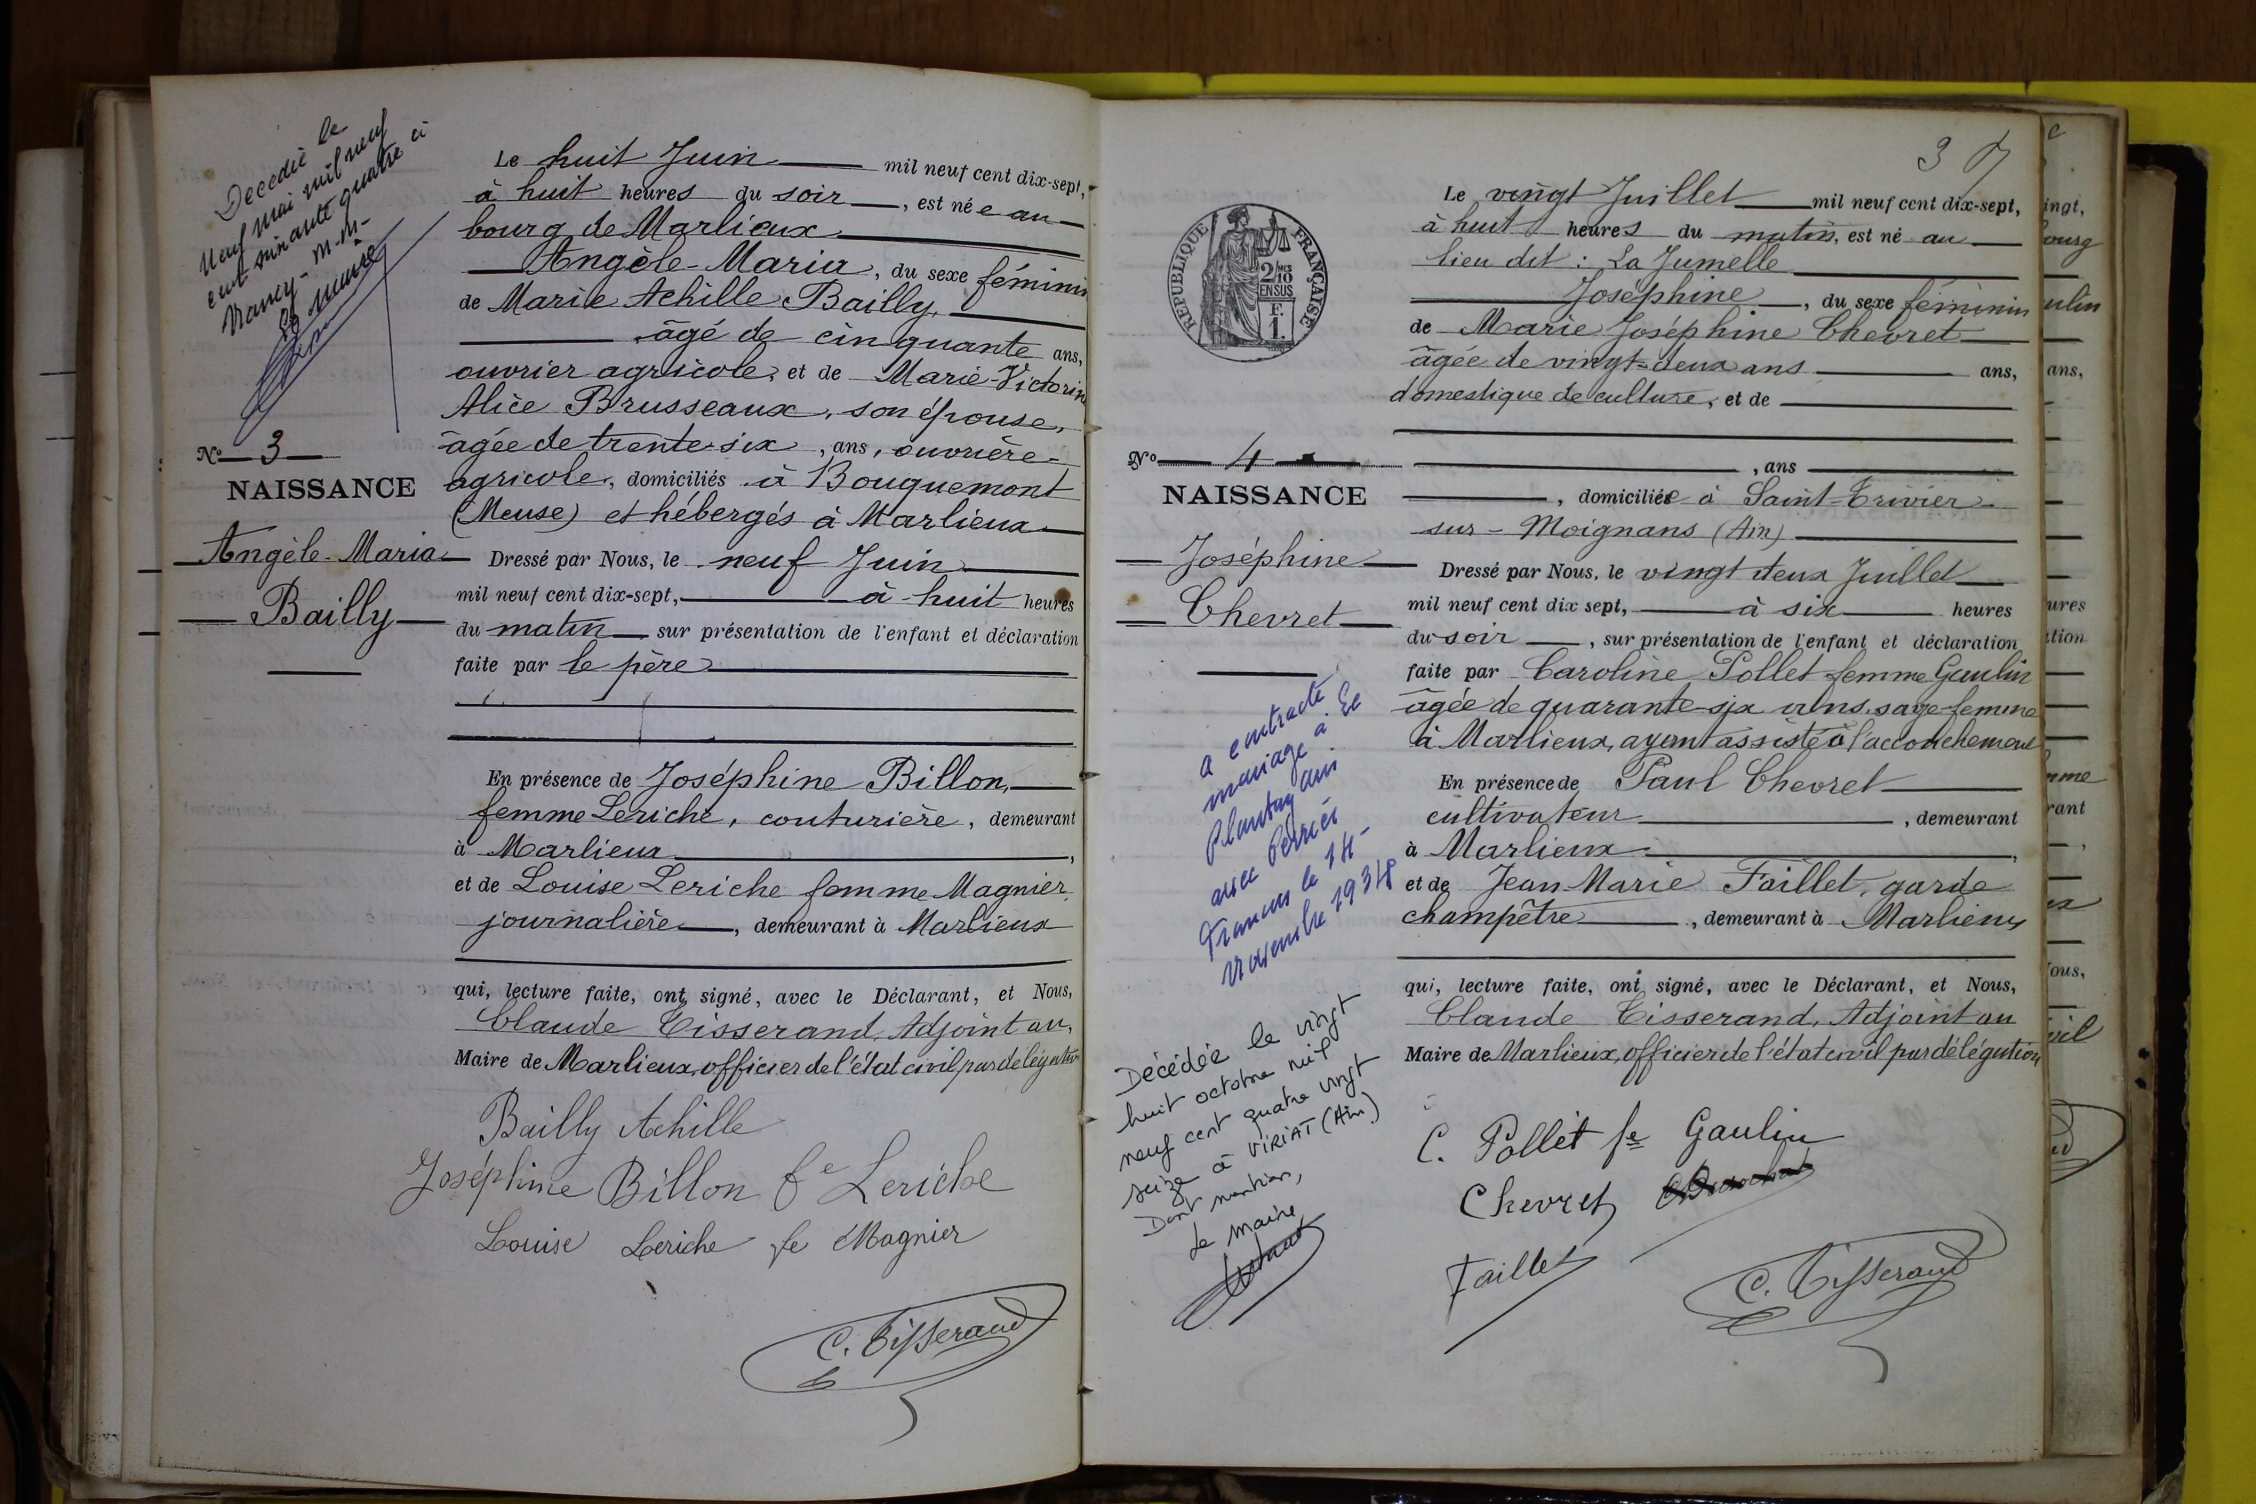 Decedée le
neuf mai mil neuf
cent soixante quatre à
Nancy - M-M-
Le Maire
Nº 3
NAISSANCE
Angèle-Maria
Bailly
Le huit Juin mil neuf cent dix-sept,
à huit heures du soir, est née au
bourg de Marlieux
Angèle-Maria, du sexe féminin
de Marie Achille Bailly,
âgé de cinquante ans,
ouvrier agricole, et de Marie-Victorin
Alice Brusseaux, son épouse,
âgée de trente-six, ans, ouvrière-
agricole, domiciliés à Bouquemont
(Meuse) et hébergés à Marlieux
Dressé par Nous, le neuf Juin
mil neuf cent dix-sept, à huit heures
du matin sur présentation de l'enfant et déclaration
faite par le père
En présence de Joséphine Billon,
femme Leriche, couturière, demeurant
à Marlieux,
et de Louise Leriche femme Magnier,
journalière, demeurant à Marlieux
qui, lecture faite, ont signé, avec le Déclarant, et Nous,
Claude Tisserand, Adjoint au,
Maire de Marlieux, officier de l'état civil par délégation
Bailly Achille
Joséphine Billon fe Leriche
Louise Leriche fe Magnier
C. Tisserand
3
RÉPUBLIQUE FRANÇAISE
2/10 MES
EN SUS
F.
1.
Nº 4
NAISSANCE
Joséphine
Chevret
a contracté
mariage à Le
Plantay ain
avec Perrier
Francis le 14
novembre 1934
Décédée le vingt
huit octobre mil
neuf cent quatre vingt
seize à VIRIAT (Ain)
Dont mention,
Le Maire
Le vingt Juillet mil neuf cent dix-sept,
à huit heures du matin, est né au
lieu dit : La Jumelle
Joséphine, du sexe féminin
de Marie Joséphine Chevret
âgée de vingt-deux ans ans,
domestique de culture, et de
, ans
, domiciliée à Saint-Trivier
sur-Moignans (Ain)
Dressé par Nous, le vingt deux Juillet
mil neuf cent dix sept, à six heures
du soir, sur présentation de l'enfant et déclaration
faite par Caroline Pollet femme Gaulin
âgée de quarante-six ans, sage-femme
à Marlieux, ayant assisté à l'accouchement
En présence de Paul Chevret
cultivateur, demeurant
à Marlieux,
et de Jean-Marie Faillet, garde
champêtre, demeurant à Marlieux
qui, lecture faite, ont signé, avec le Déclarant, et Nous,
Claude Tisserand, Adjoint au
Maire de Marlieux, officier de l'état civil par délégation
C. Pollet fe Gaulin
Chevret
Faillet
C. Tisserand